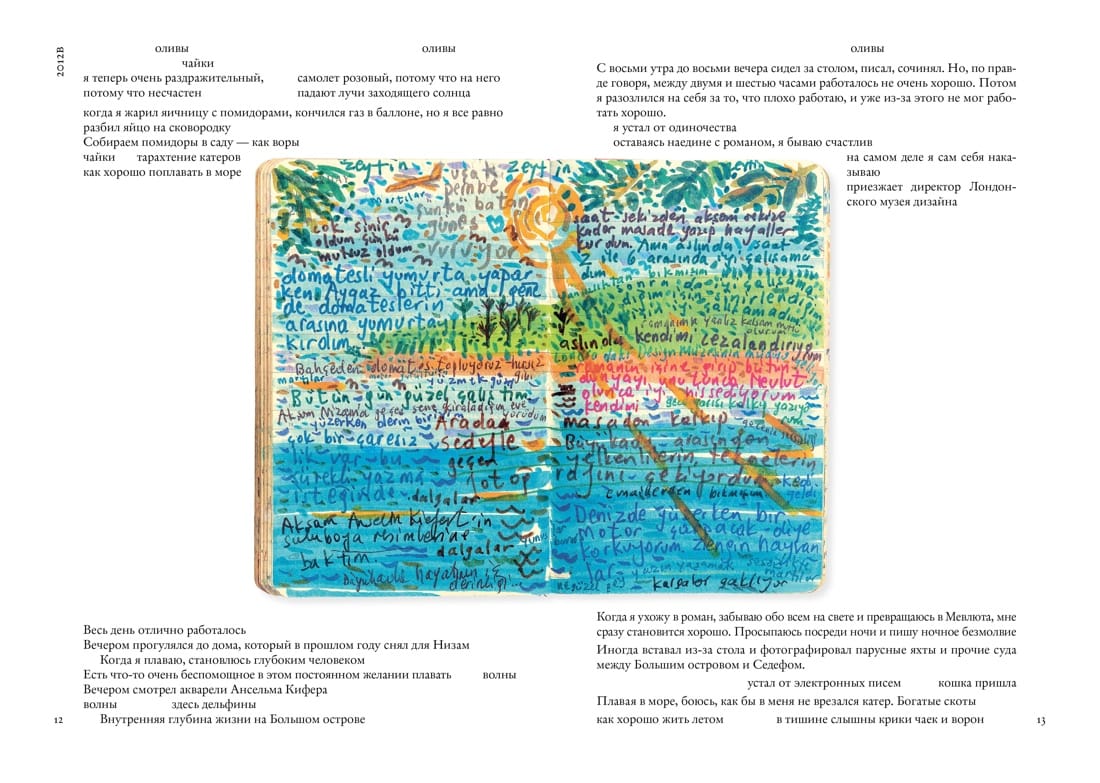 2012В
оливы
чайки
я теперь очень раздражительный,
потому что несчастен
оливы
самолет розовый, потому что на него
падают лучи заходящего солнца
когда я жарил яичницу с помидорами, кончился газ в баллоне, но я все равно
разбил яйцо на сковородку
Собираем помидоры в саду — как воры
чайки тарахтение катеров
как хорошо поплавать в море
zeytin
zeytin
uçak
pembe
martılar
çünkü batan
güneş
vuruyor
çok sinir
oldum çünkü
mutsuz oldum
domatesli yumurta yapar
ken Aygaz bitti ama gene
de domateslerin
arasına yumurtayı
kırdım
Bahçeden domates topluyoruz hırsız
gibi
Bütün gün güzel çalıştım
Aradan
çok bir çaresiz
sedefle
lik var bu
geçen
sürekli yazma
fotoğ
isteğinde
dalgalar
Akşam Anselm Kiefer'in
suluboya resimlerine
dalgalar
baktım
hayatının
Весь день отлично работалось
Вечером прогулялся до дома, который в прошлом году снял для Низам
Когда я плаваю, становлюсь глубоким человеком
Есть что-то очень беспомощное в этом постоянном желании плавать волны
Вечером смотрел акварели Ансельма Кифера
волны здесь дельфины
12 Внутренняя глубина жизни на Большом острове
оливы
С восьми утра до восьми вечера сидел за столом, писал, сочинял. Но, по прав-
де говоря, между двумя и шестью часами работалось не очень хорошо. Потом
я разозлился на себя за то, что плохо работаю, и уже из-за этого не мог рабо-
тать хорошо.
я устал от одиночества
оставаясь наедине с романом, я бываю счастлив
на самом деле я сам себя нака-
зываю
приезжает директор Лондон-
ского музея дизайна
zeytin
saat sekizden akşam sekize
kadar masada yazıp hayaller
kurdum. Ama aslında saat
2 ile 6 arasında iyi çalışama
dım
aslında kendimi cezalandırıyorum
Londradaki Design Müzesinin müdürü
romanın içine girip bütün
dünyayı unutunca Mevlut
olunca iyi hissediyorum
kendimi
masadan kalkıp
Büyükada arasından
yelkenlilerin teknelerin
Emaillerden bıkmışım
kedi
geldi
Denizde yüzerken bir
motor çarpacak diye
korkuyorum. Zengin hayvan
lar
kargalar gaklıyor
Когда я ухожу в роман, забываю обо всем на свете и превращаюсь в Мевлюта, мне
сразу становится хорошо. Просыпаюсь посреди ночи и пишу ночное безмолвие
Иногда вставал из-за стола и фотографировал парусные яхты и прочие суда
между Большим островом и Седефом.
устал от электронных писем кошка пришла
Плавая в море, боюсь, как бы в меня не врезался катер. Богатые скоты
как хорошо жить летом в тишине слышны крики чаек и ворон 13